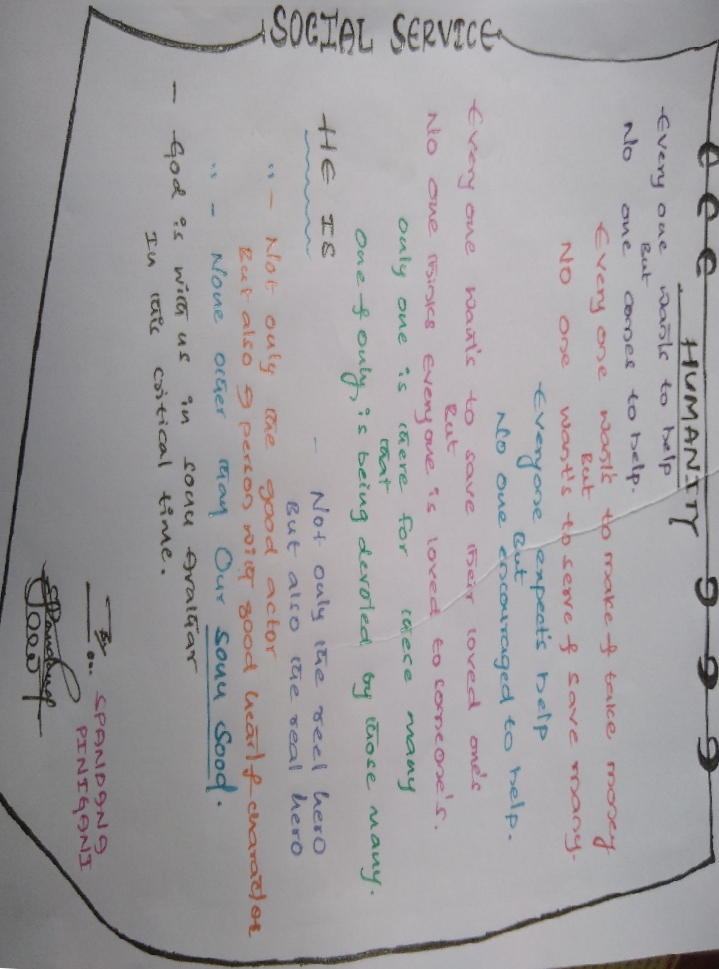 SOCIAL SERVICE
HUMANITY
- Every one wants to help
But
No one comes to help.
- Every one wants to make & take money
But
No one want's to serve & save many.
- Everyone expect's help
But
No one encouraged to help.
- Every one want's to save their loved one's
But
No one thinks everyone is loved to someone's.
only one is there for these many
that
One & only, is being devoted by those many.
HE IS
- Not only the reel hero
But also the real hero
" - Not only the good actor
But also a person with good heart & character
" - None other than Our Sonu Sood.
- God is with us in sonu Avathar
In this critical time.
By
SPANDANA
PINIGANI